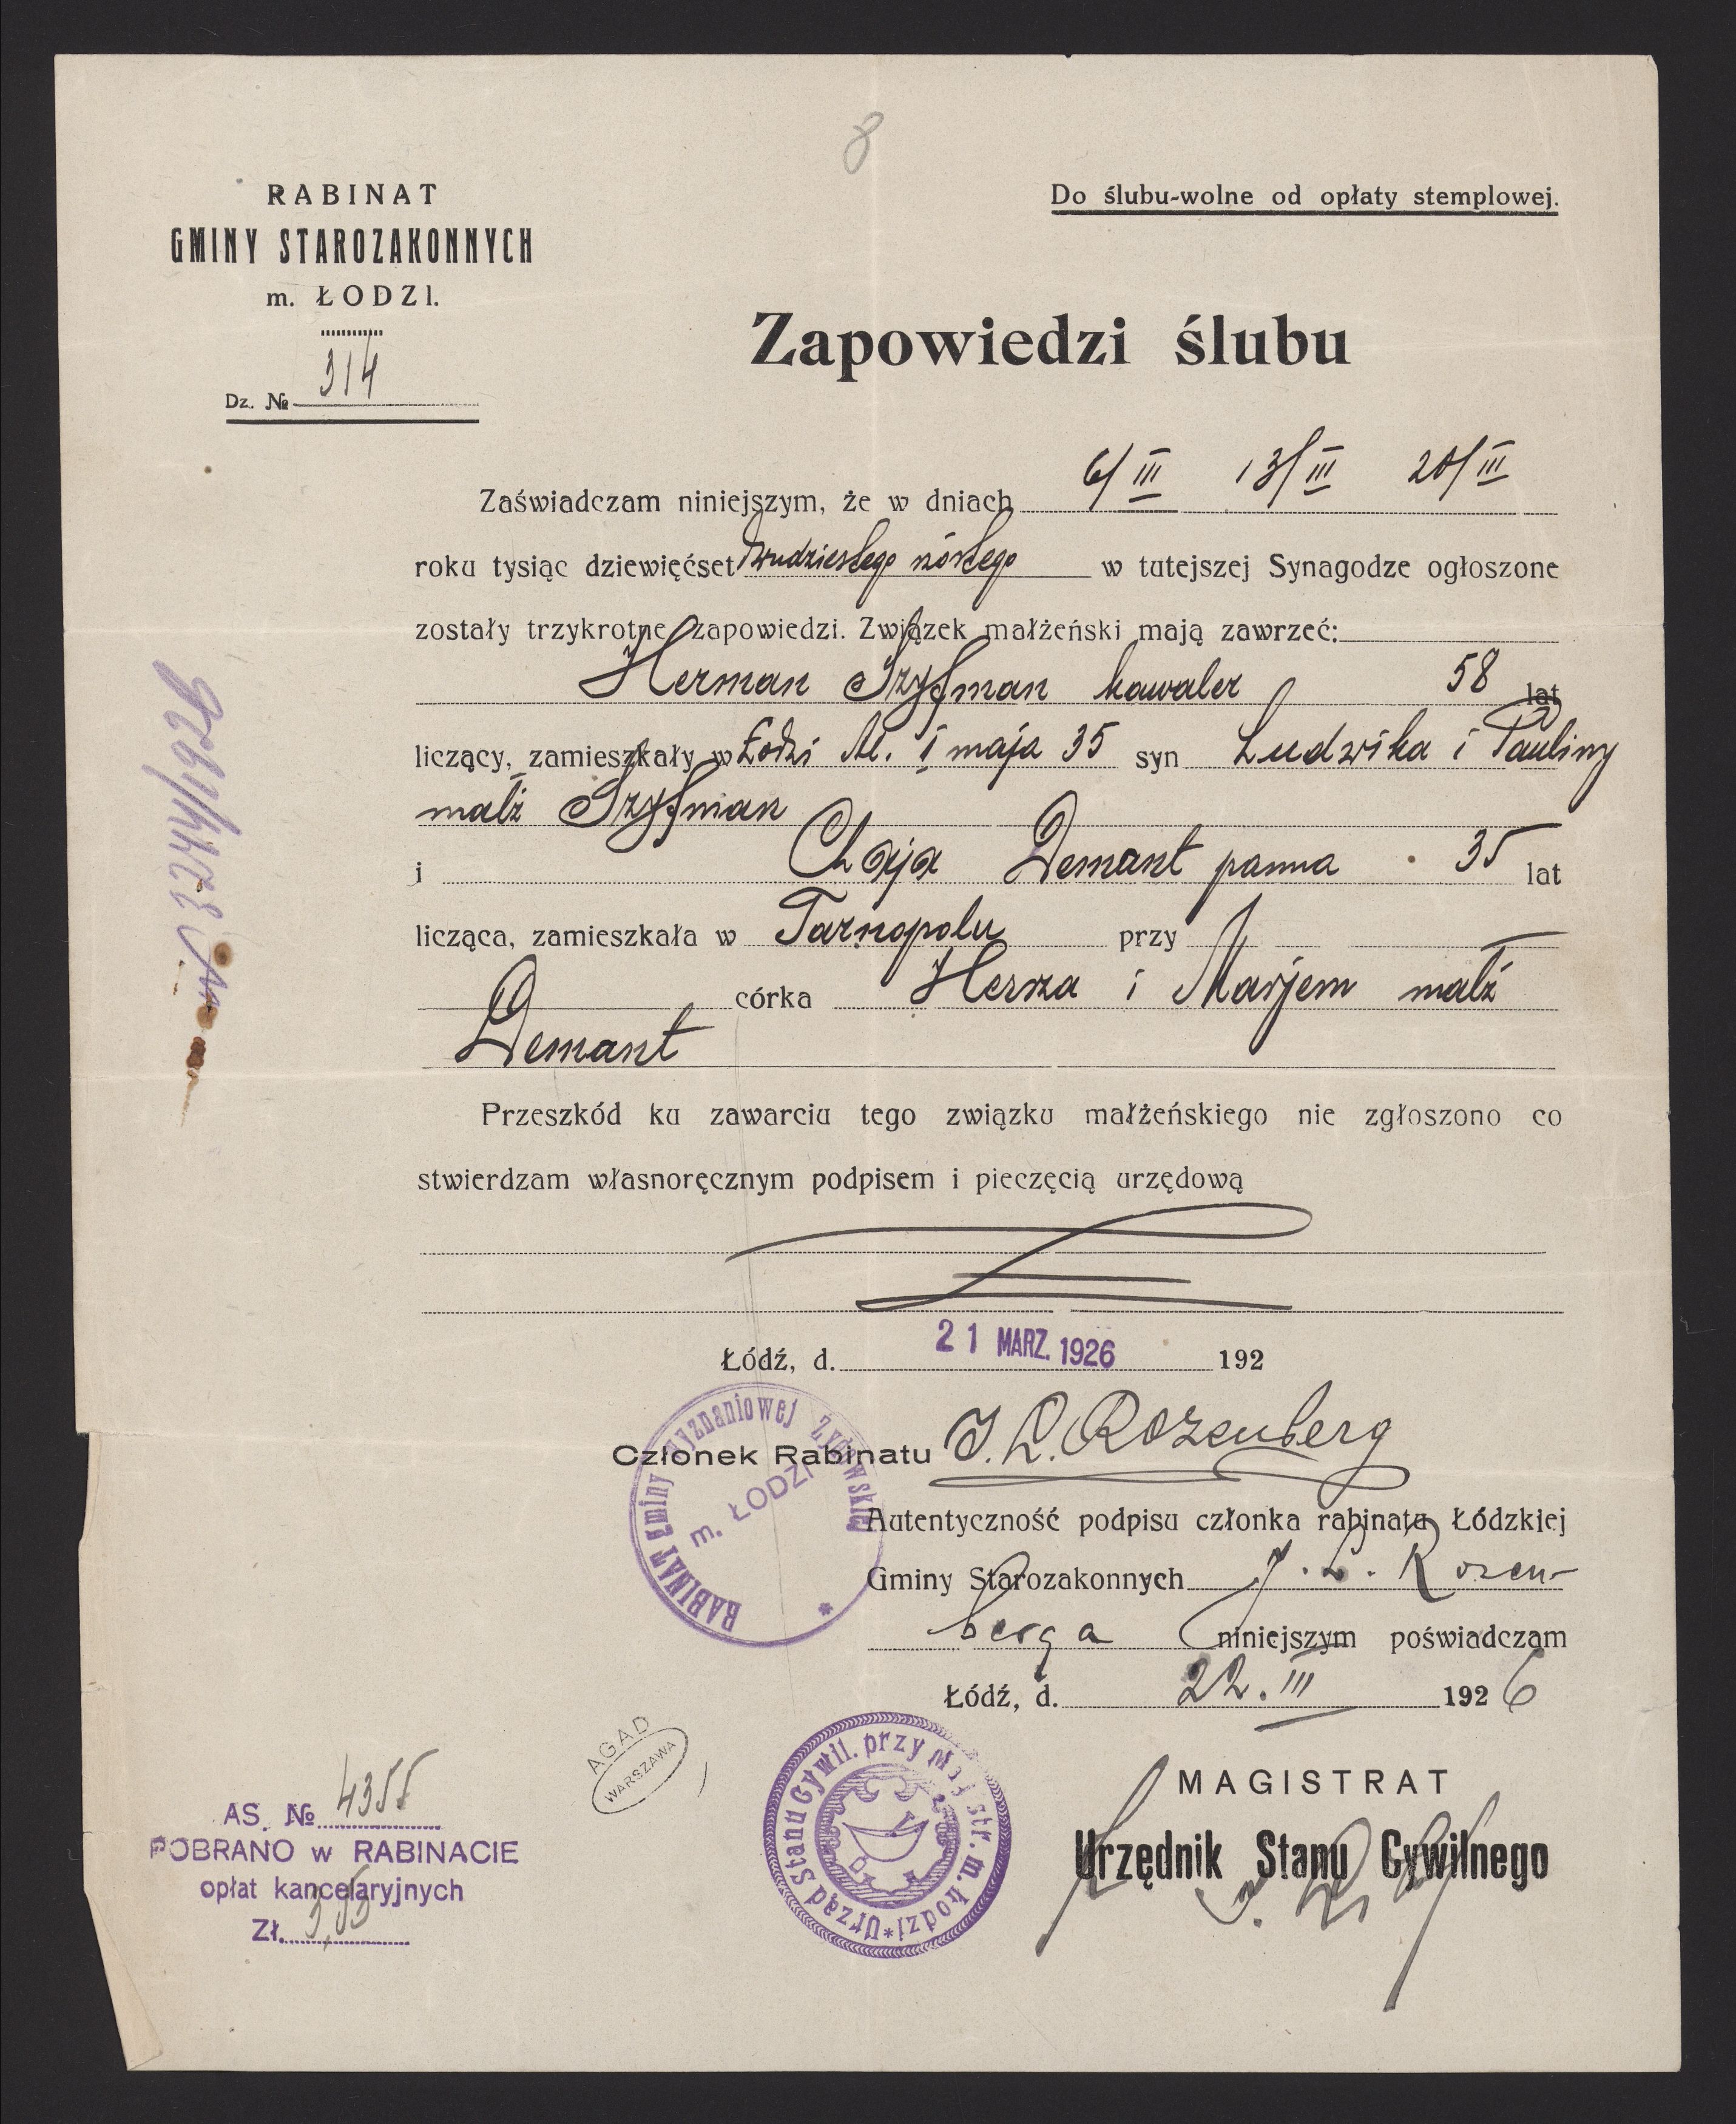 8
RABINAT
GMINY STAROZAKONNYCH
m. ŁODZI.
Dz. № 314
Do ślubu-wolne od opłaty stemplowej.
Zapowiedzi ślubu
Zaświadczam niniejszym, że w dniach 6/III 13/III 20/III
roku tysiąc dziewięćset dwudziestego szóstego w tutejszej Synagodze ogłoszone
zostały trzykrotne zapowiedzi. Związek małżeński mają zawrzeć:
Herman Szyfman kawaler 58 lat
liczący, zamieszkały w Łodzi Al. I maja 35 syn Ludwika i Pauliny
małż Szyfman
i Chaja Demant panna 35 lat
licząca, zamieszkała w Tarnopolu przy
córka Hersza i Marjem małż
Demant
Przeszkód ku zawarciu tego związku małżeńskiego nie zgłoszono co
stwierdzam własnoręcznym podpisem i pieczęcią urzędową
Łódź, d. 21 MARZ. 1926 192
Członek Rabinatu J. L. Rozenberg
RABINAT Gminy Wyznaniowej Żydowskiej
m. ŁODZI
Autentyczność podpisu członka rabinatu Łódzkiej
Gminy Starozakonnych J. L. Rozen-
berga niniejszym poświadczam
Łódź, d. 22. III 1926
MAGISTRAT
Urzędnik Stanu Cywilnego
Urząd Stanu Cywil. przy Magistr. m. Łodzi
AGAD
WARSZAWA
AS. № 4355
POBRANO w RABINACIE
opłat kancelaryjnych
Zł. 3,55